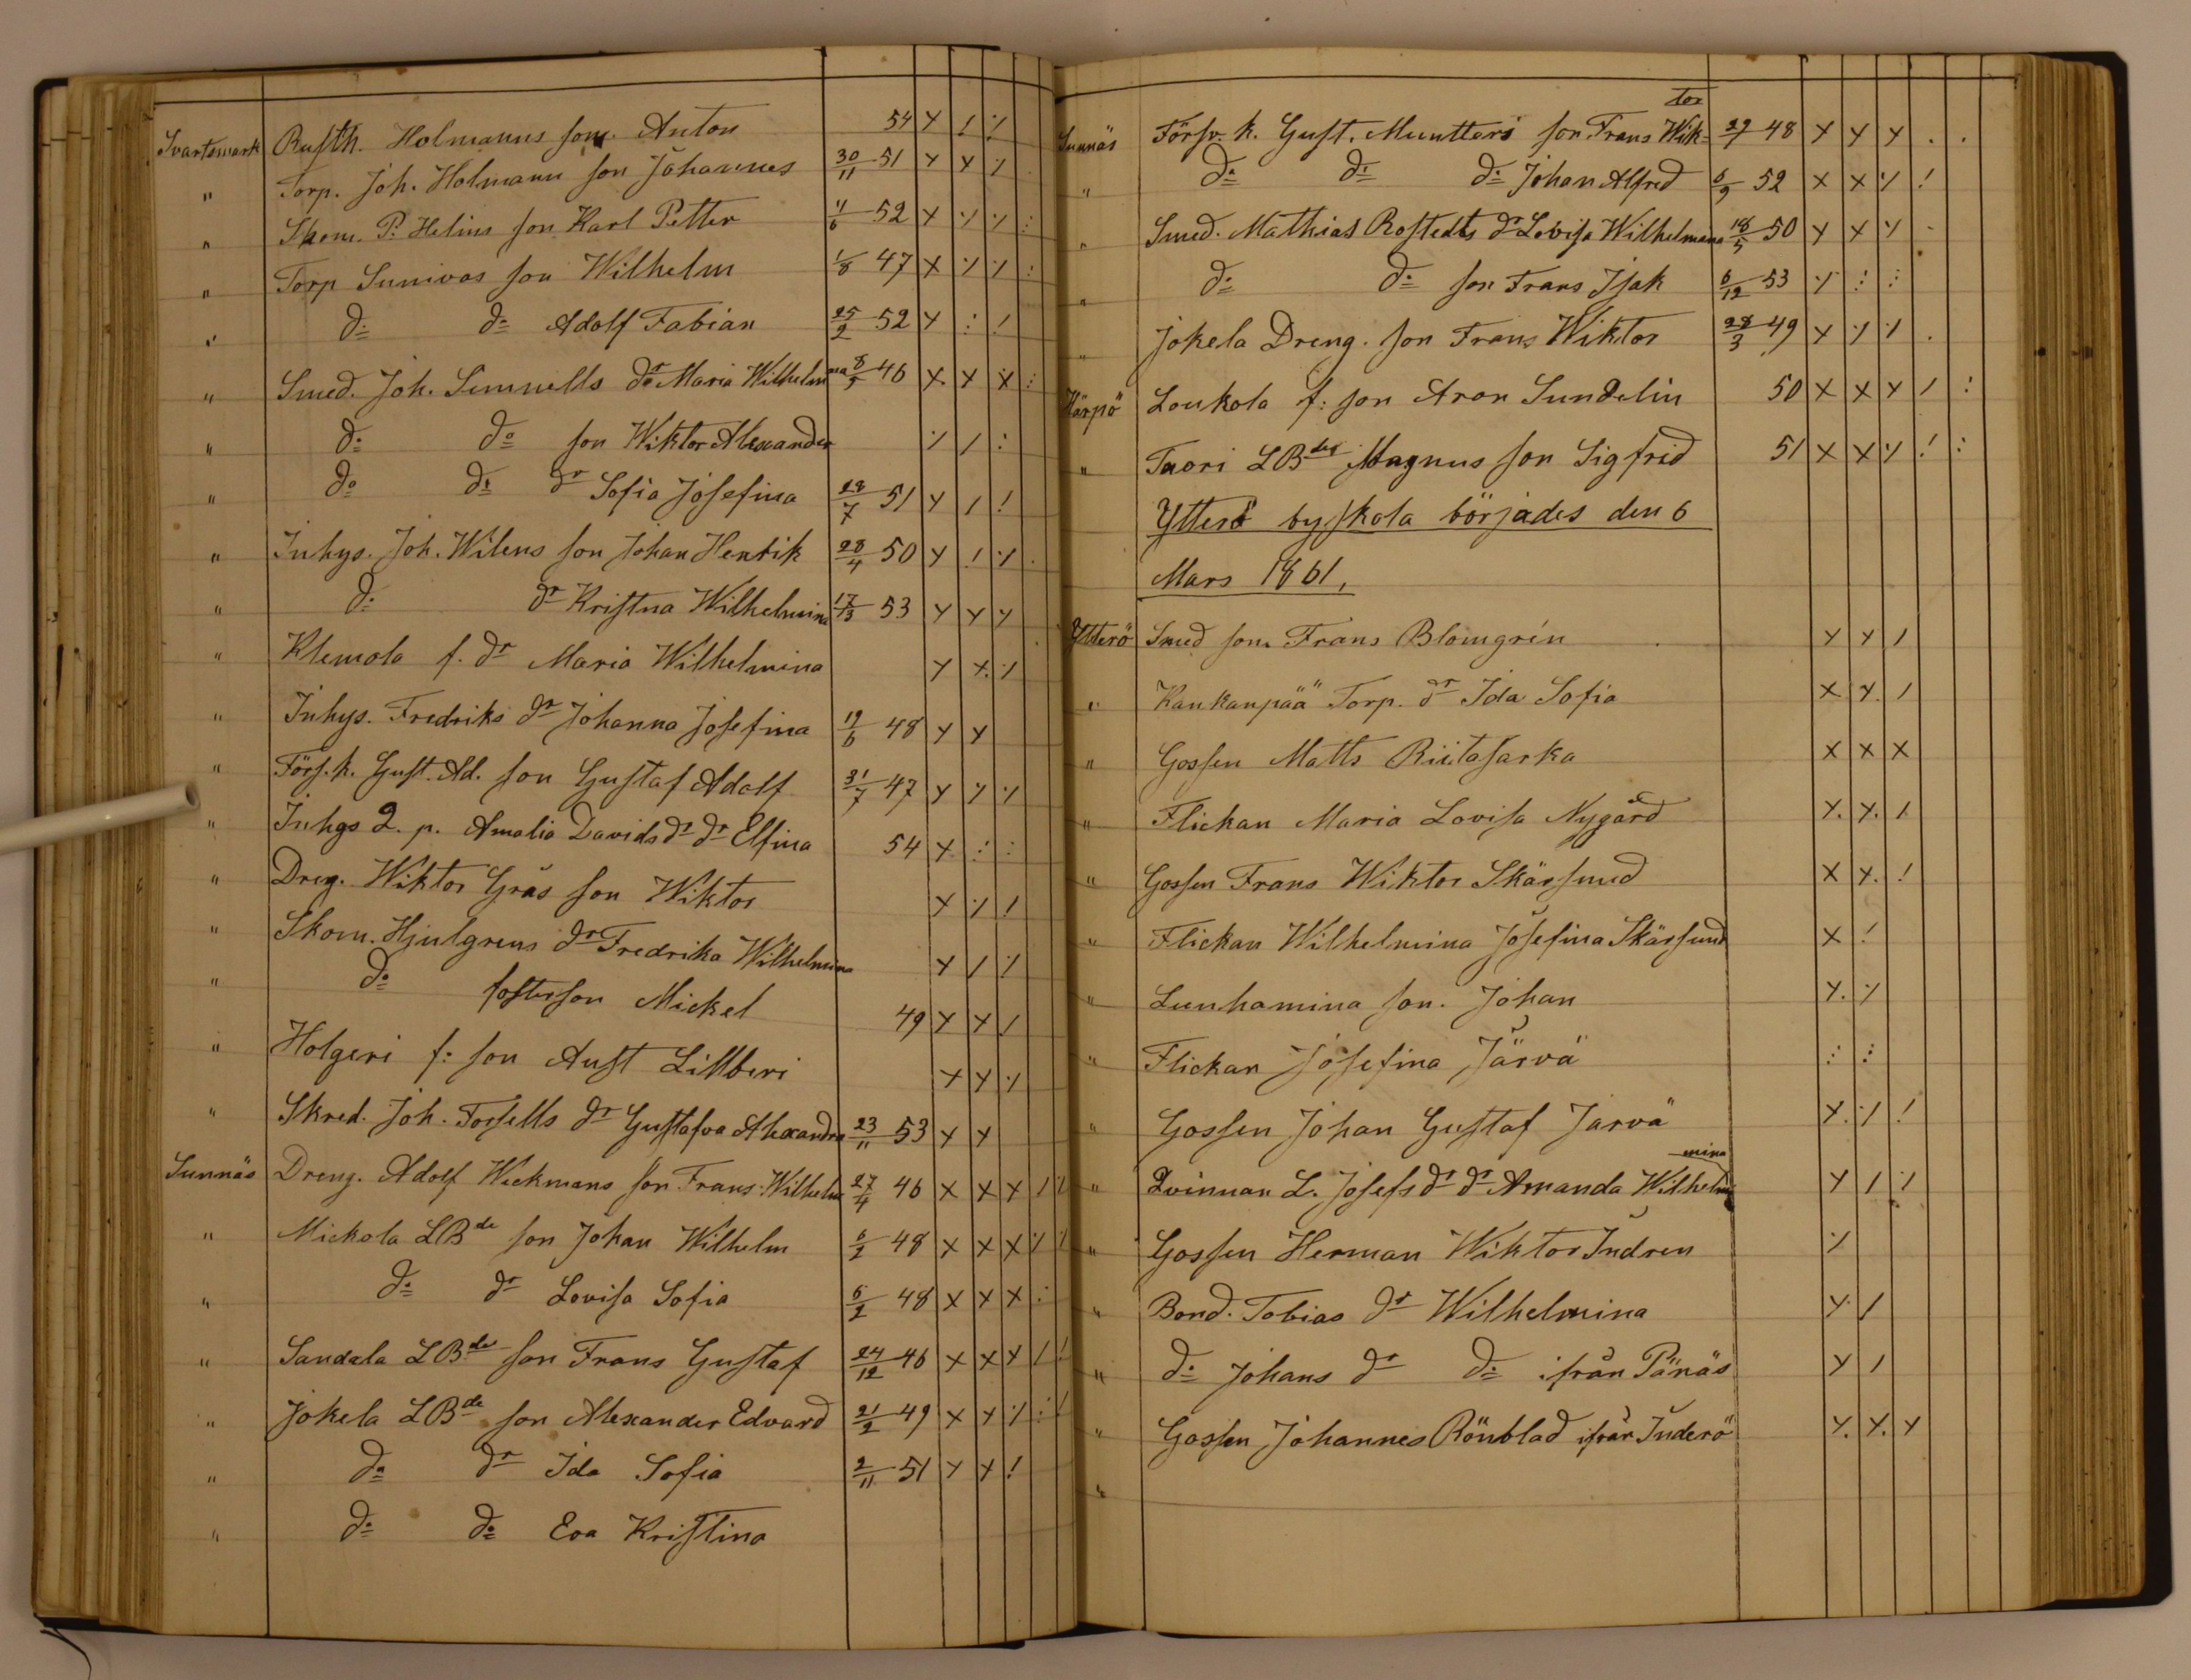 Svartsmark Rusth. Holmanns son Anton 54 x / ./.
" Torp. Joh. Holmann son Johannes 30/11 51 x x ./.
" Skom. P. Helins son Karl Petter 11/6 52 x ./. ./. :
" Torp Sunivas son Wilhelm 1/8 47 x ./. ./. :
" d:o d:o Adolf Fabian 25/2 52 x : !
" Smed. Joh. Simnells dr Maria Wilhelmina 8/5 46 x x x :
" d:o d:o son Wiktor Alexander ./. / :
" d:o d:o dr Sofia Josefina 28/7 51 x / !
" Inhys. Joh. Wilens son Johan Henrik 28/4 50 x ! ./.
" d:o dr Kristina Wilhelmina 17/13 53 x x x
" Klemola f. dr Maria Wilhelmina x x ./.
" Inhys. Fredriks dr Johanna Josefina 19/6 48 x x
" Förs. k. Gust. Ad. son Gustaf Adolf 31/7 47 x ./. ./.
" Inhys Q. p. Amalia Davids dr dr Elfina 54 x : :
" Dreng. Wiktor Gräs son Wiktor x ./. !
" Skom. Hjulgrens dr Fredrika Wilhelmina x / ./.
" d:o fosterson Mickel 49 x x /
" Holgeri f: son Aust Lillberi x x ./.
" Skred. Joh. Forsells dr Gustafva Alexandra 23/11 53 x x
Sunnäs Dreng. Adolf Weckmans son Frans Wilhelm 27/4 46 x x x / ./.
" Mickola LBde son Johan Wilhelm 6/2 48 x x x ./. ./.
" d:o dr Lovisa Sofia 6/2 48 x x x :
" Sandala LBde son Frans Gustaf 24/12 46 x x x / !
" Jokela LBde son Alexander Edvard 21/2 49 x x ./. : !
" d:o dr Ida Sofia 2/11 51 x x !
" d:o d:o Eva Kristina
Sunnäs Försv. k. Gust. Muntters son Frans Wiktor 29/7 48 x x x . .
" d:o d:o d:o Johan Alfred 6/9 52 x x ./. !
" Smed. Mathias Rostedts dr Lovisa Wilhelmina 18/5 50 x x ./. -
" d:o d:o son Frans Isak 6/12 53 ./. : :
" Jokela Dreng. son Frans Wiktor 28/3 49 x ./. ./. .
Härpö Loukola f: son Aron Sundelin 50 x x x / :
" Taori LBdes Magnus son Sigfrid 51 x x ./. ! :
Ytterö byskola börjades den 6
Mars 1861,
Ytterö Smed son Frans Blomgrén x x /
" Kankanpää Torp. dr Ida Sofia x x. /
" Gossen Matts Riitasarka x x x
" Flickan Maria Lovisa Nygård x. x. /
" Gossen Frans Wiktor Skärsund x x. !
" Flickan Wilhelmina Josefina Skärsund x !
" Lunhamina son. Johan x. ./.
" Flickan Josefina Järvä : :
" Gossen Johan Gustaf Jarvä x. ./. !
" Qvinnan L. Josefs dr dr Amanda Wilhelmina x / ./.
" Gossen Herman Wiktor Indren ./.
" Bond. Tobias dr Wilhelmina x. /
" d:o Johans dr d:o ifrån Pänäs x /
" Gossen Johannes Rönblad ifrån Inderö x. x. x
"